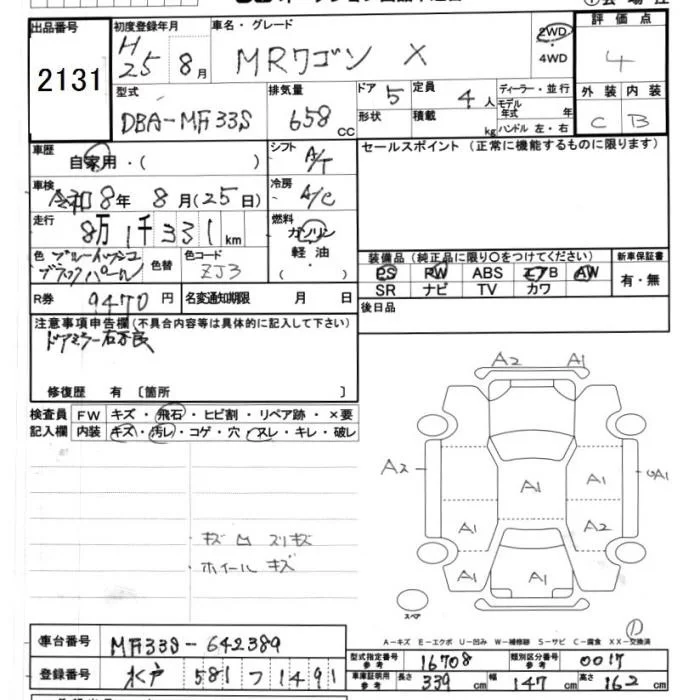 出品番号
2131
初度登録年月
H
25 8月
車名・グレード
MRワゴン X
2WD
・
4WD
評価点
4
外装 内装
C B
型式
DBA-MF33S
排気量
658 CC
ドア 5
定員 4人
形状
積載 kg
ディーラー・並行
モデル年式 年
ハンドル 左・右
車歴
自家用・( )
シフト
A/T
セールスポイント (正常に機能するものに限ります)
車検
令和8年 8月(25日)
冷房
A/C
走行
8万1千331km
燃料
ガソリン
軽油・
( )
色
ブルーイッシュ
ブラックパール
色替
色コード
ZJ3
装備品 (純正品に限り〇をつけてください)
新車保証書
PS PW ABS エアB AW
SR ナビ TV カワ
有・無
R券 9470円
名変通知期限 月 日
後日品
注意事項申告欄 (不具合内容等は具体的に記入して下さい)
ドアミラー右不良
修復歴 有 〔箇所 〕
検査員
記入欄
FW キズ・飛石・ヒビ割・リペア跡・×要
内装 キズ・汚レ・コゲ・穴・スレ・キレ・破レ
キズ 凹 スリキズ
ホイールキズ
A2 A1
A2 A1 A1 A1
A1 A2
A1 A1
スペア
A-キズ E-エクボ U-凹み W-補修跡 S-サビ C-腐食 XX-交換済
車台番号 MF33S-642389
登録番号 水戸 581 つ 1491
型式指定番号 参考 16708
類別区分番号 参考 0017
車庫証明用 参考 長さ 339cm 幅 147cm 高さ 162cm